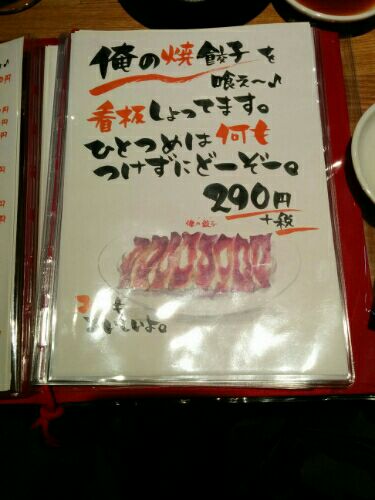 俺の焼餃子を
喰え〜♪
看板しょってます。
ひとつめは何も
つけずにどーぞー。
290円
+税
俺の餃子
いいよ。